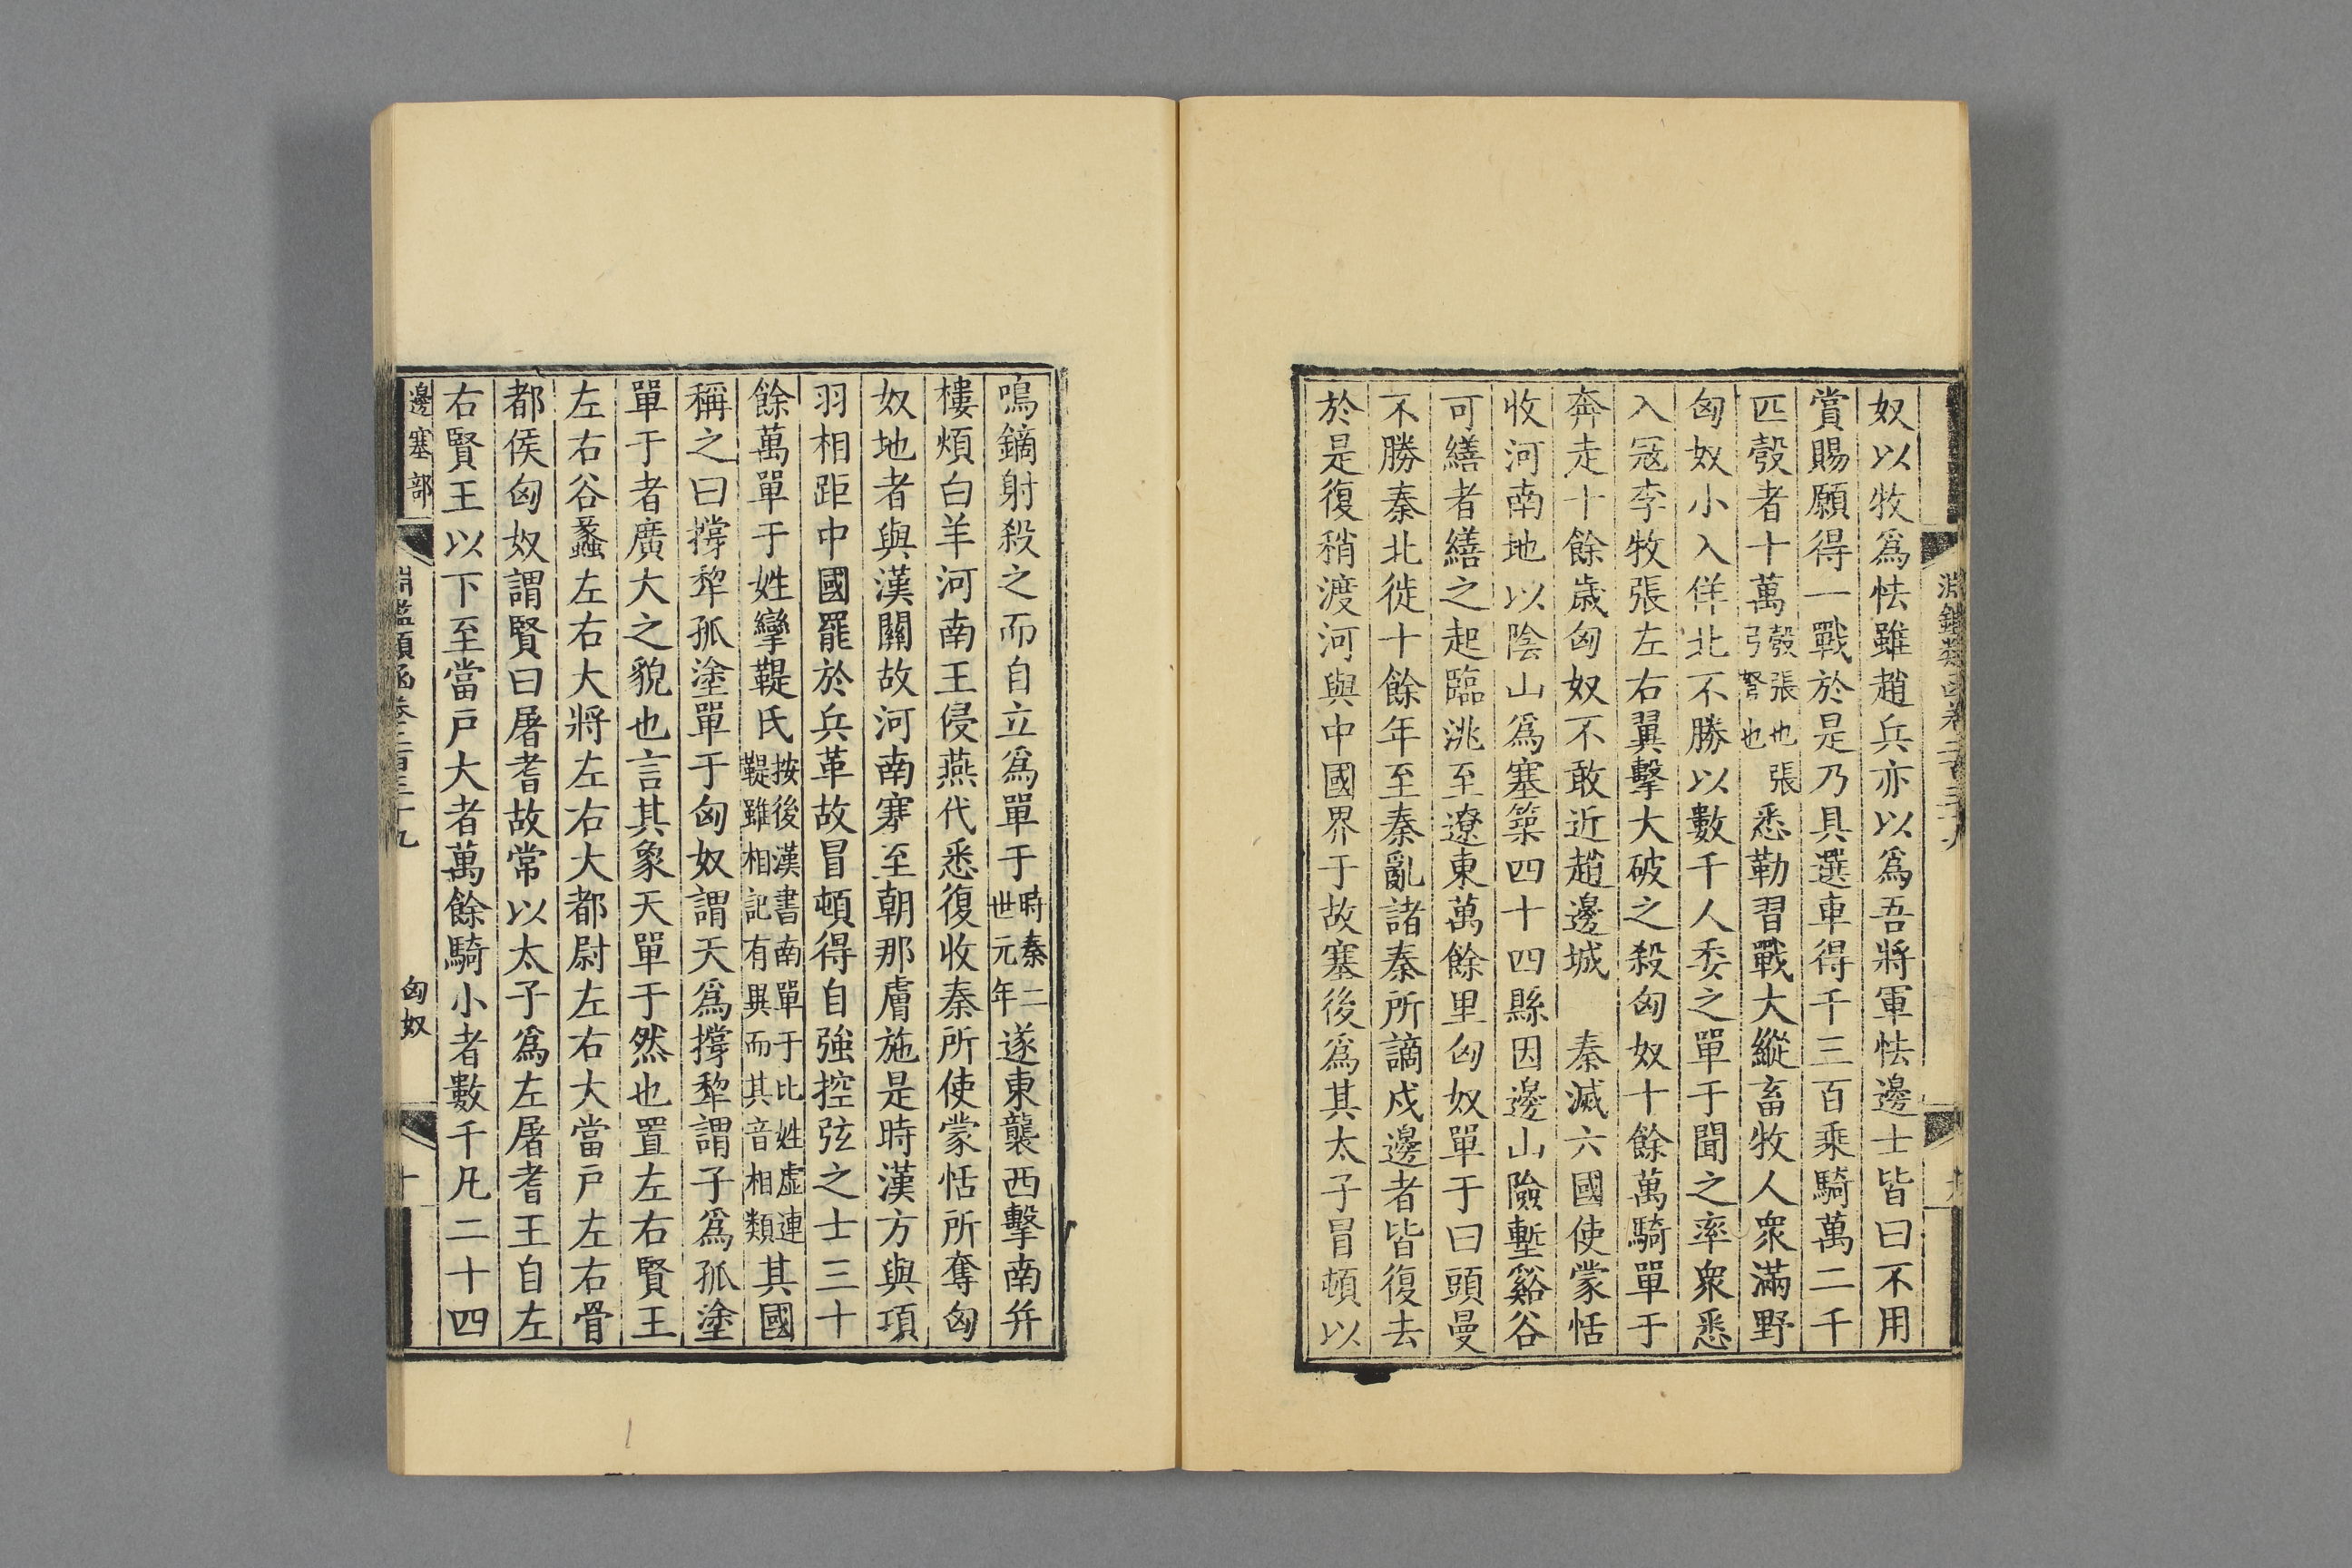 奴以牧爲怯雖趙兵亦以爲吾將軍怯邊士皆曰不用
賞賜願得一戰於是乃具選車得千三百乘騎萬二千
匹彀者十萬彀張也張弓弩也悉勒習戰大縱畜牧人衆滿野
匈奴小入佯北不勝以數千人委之單于聞之率衆悉
入冦李牧張左右翼擊大破之殺匈奴十餘萬騎單于
奔走十餘歲匈奴不敢近趙邊城　秦滅六國使蒙恬
收河南地以陰山爲塞築四十四縣因邊山險塹谿谷
可繕者繕之起臨洮至遼東萬餘里匈奴單于曰頭曼
不勝秦北徙十餘年至秦亂諸秦所謫戍邊者皆復去
於是復稍渡河與中國界于故塞後爲其太子冒頓以
鳴鏑射殺之而自立爲單于時秦二世元年遂東襲西擊南并
樓煩白羊河南王侵燕代悉復收秦所使蒙恬所奪匈
奴地者與漢關故河南塞至朝那膚施是時漢方與項
羽相距中國罷於兵革故冒頓得自強控弦之士三十
餘萬單于姓攣鞮氏按後漢書南單于比姓虛連鞮雖相記有異而其音相類其國
稱之曰撐犂孤塗單于匈奴謂天爲撐犂謂子爲孤塗
單于者廣大之貌也言其象天單于然也置左右賢王
左右谷蠡左右大將左右大都尉左右大當戶左右骨
都侯匈奴謂賢曰屠耆故常以太子爲左屠耆王自左
右賢王以下至當戶大者萬餘騎小者數千凡二十四
邊塞部
淵鑑類函卷二百三十九
匈奴
十